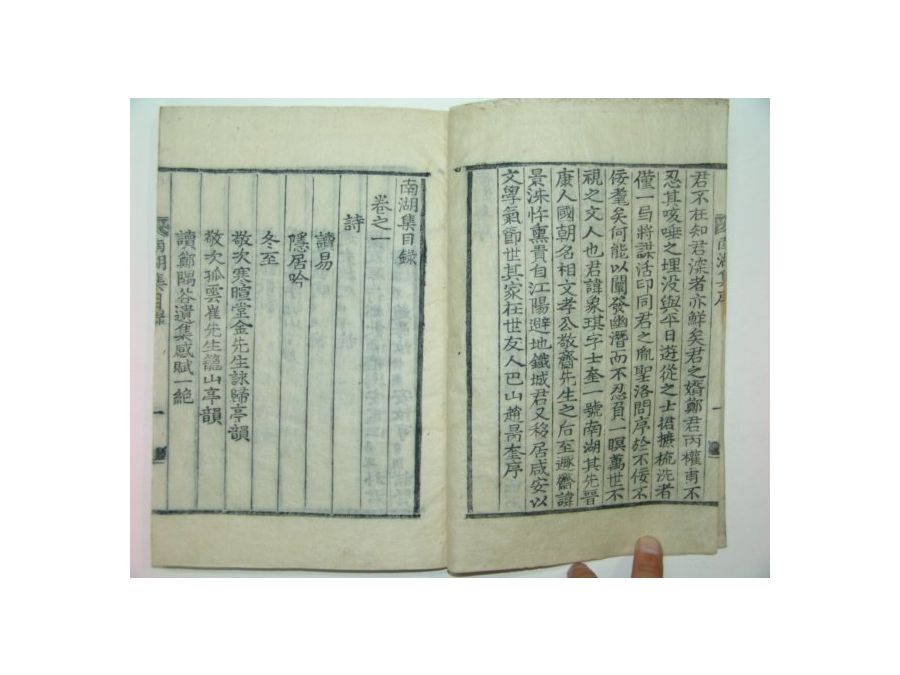 君不在知君深者亦鮮矣君之婿鄭君丙權甫不
忍其咳唾之埋没與平日遊從之士捃摭梳洗者
僅一弓將謀活印同君之胤聖洛問序於不佞不
佞耄矣何能以闡發幽潛而不忍負一瞑萬世不
視之文人也君諱象琪字士奎一號南湖其先晋
康人國朝名相文孝公敬齋先生之后至遯齋諱
景洙忤熏貴自江陽避地鐵城君又移居咸安以
文學氣節世其家在世友人巴山趙昺奎序
南湖集序
南湖集目錄
卷之一
詩
讀易
隱居吟
冬至
敬次寒暄堂金先生詠歸亭韻
敬次孤雲崔先生籠山亭韻
讀鄭隅谷遺集感賦一絶
南湖集目錄
一